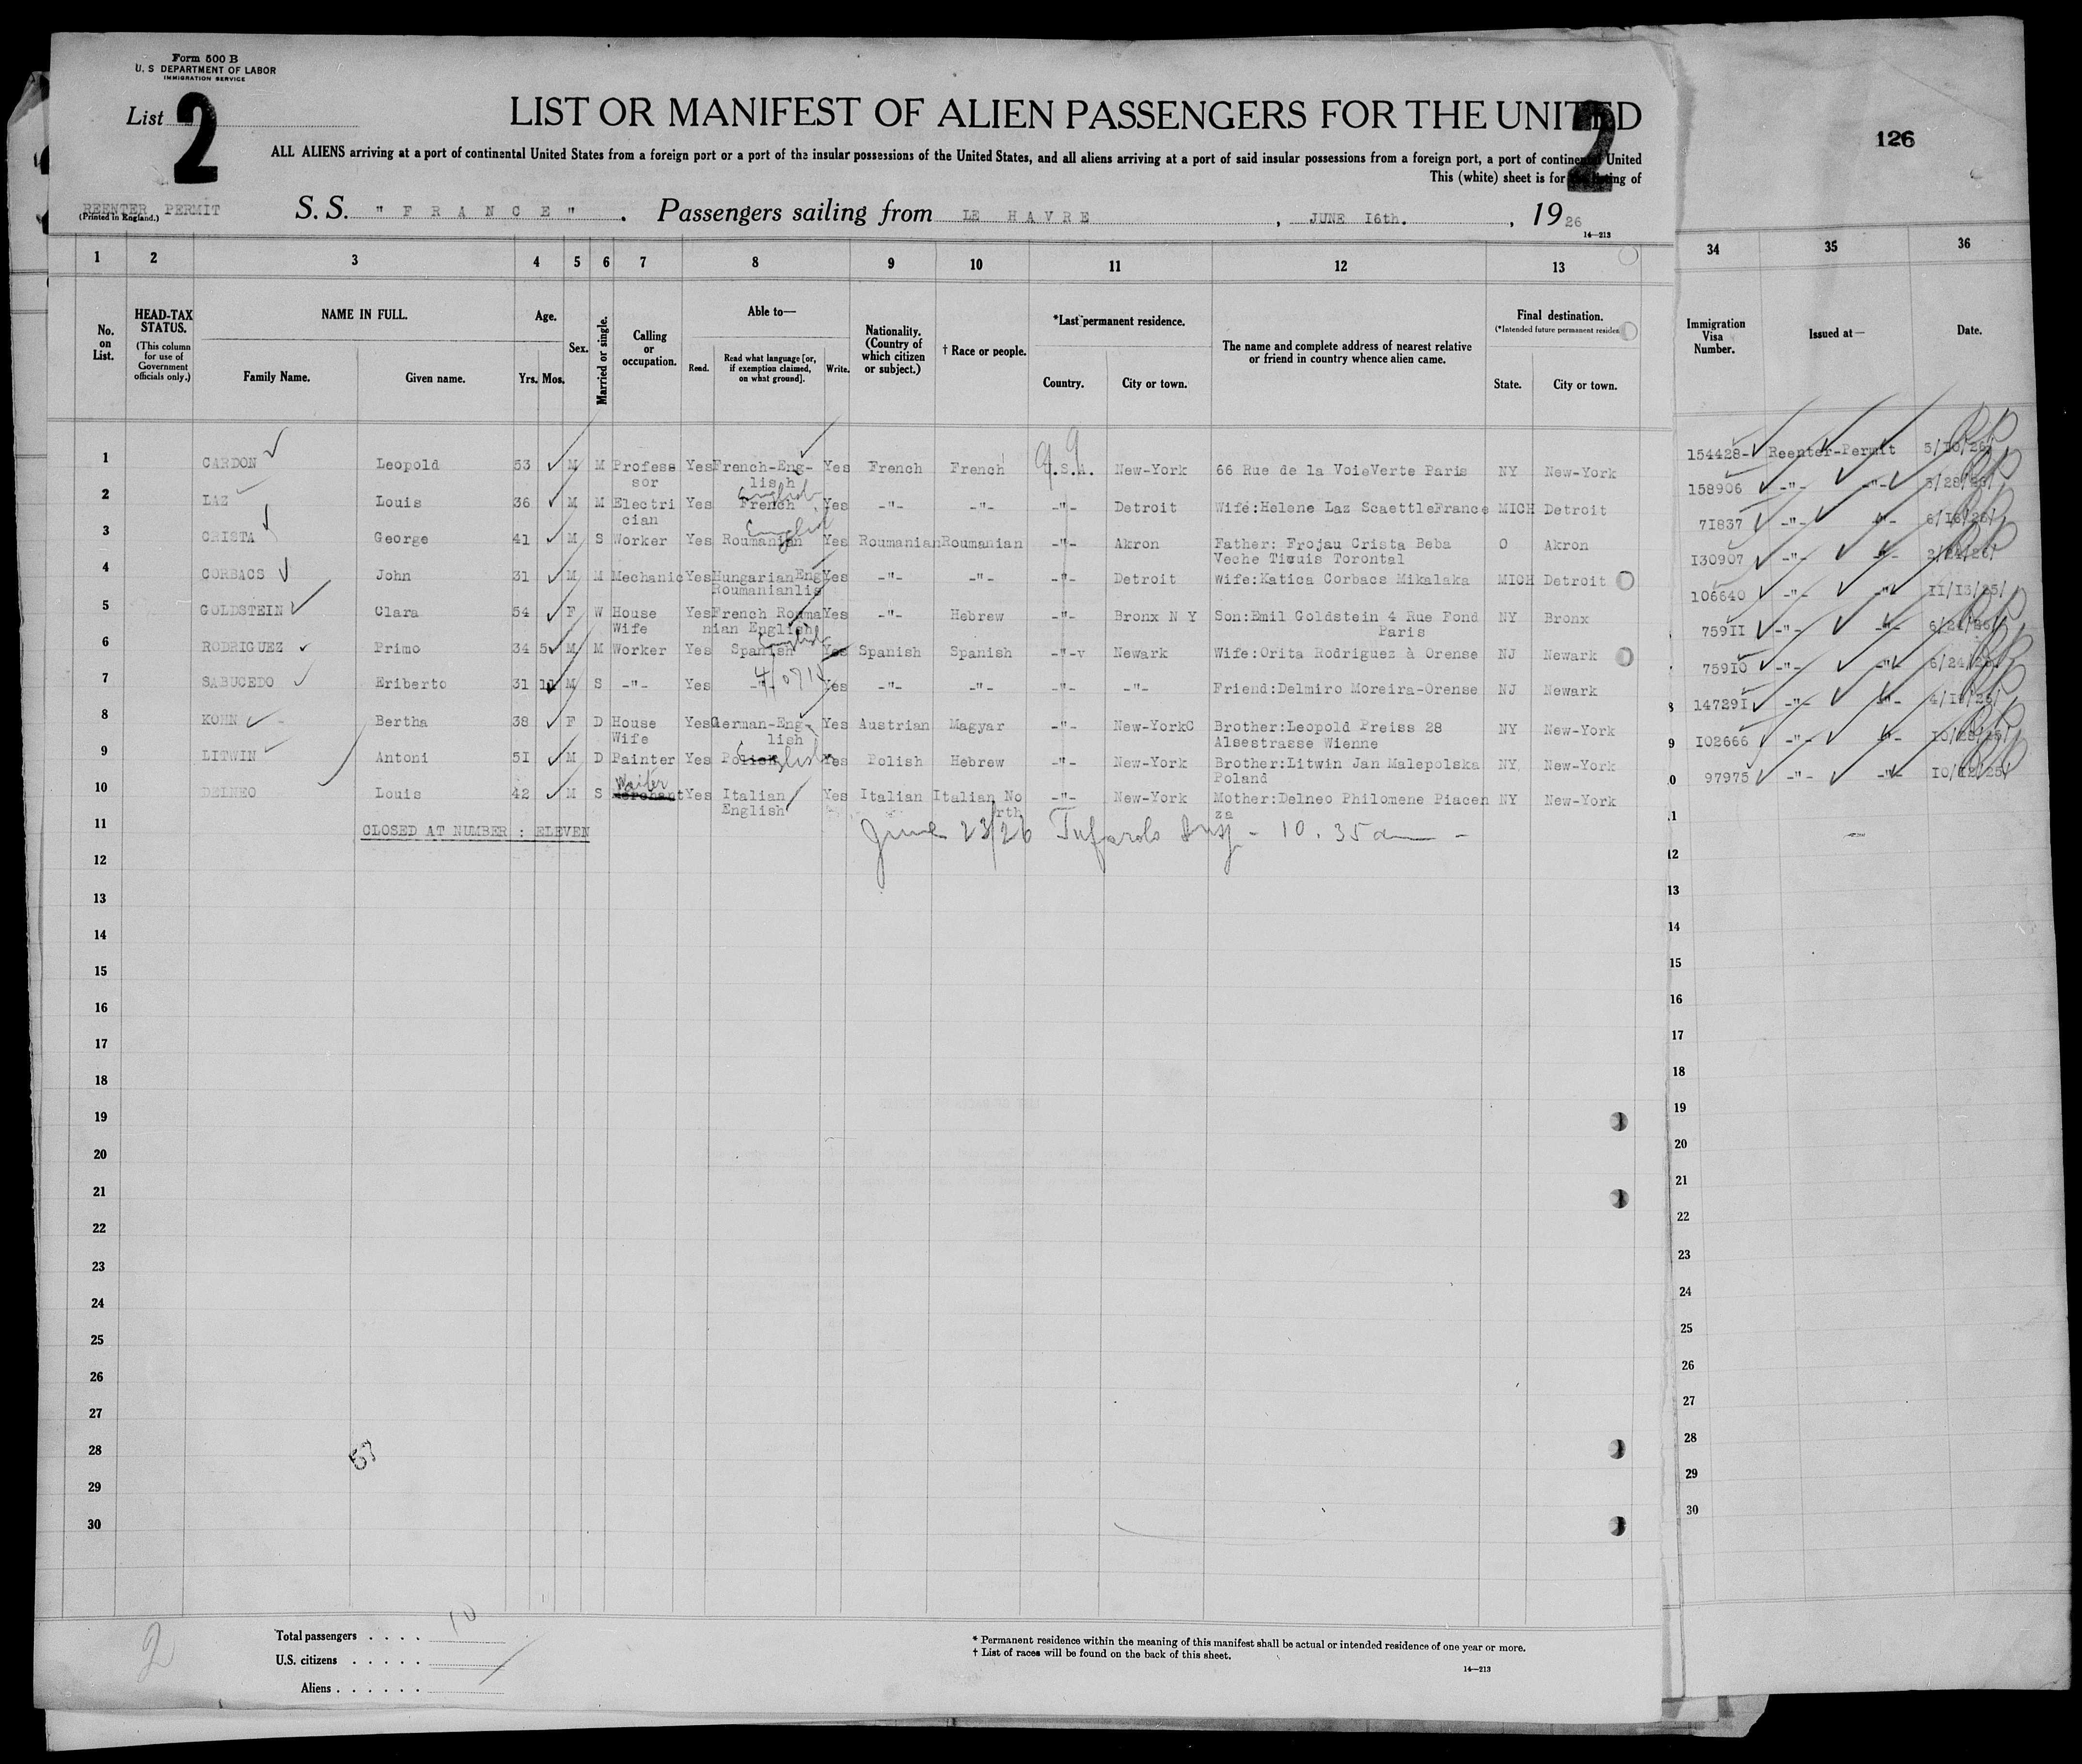 Form 500 B
U. S DEPARTMENT OF LABOR
IMMIGRATION SERVICE
List 2
LIST OR MANIFEST OF ALIEN PASSENGERS FOR THE UNITED
2
126
ALL ALIENS arriving at a port of continental United States from a foreign port or a port of the insular possessions of the United States, and all aliens arriving at a port of said insular possessions from a foreign port, a port of continental United
This (white) sheet is for the listing of
REENTER PERMIT
(Printed in England.)
S. S. " F R A N C E " . Passengers sailing from LE HAVRE , JUNE I6th. , 19 26
14—213
1 2 3 4 5 6 7 8 9 10 11 12 13 34 35 36
No. on List.
HEAD-TAX STATUS. (This column for use of Government officials only.)
NAME IN FULL.
Family Name. Given name.
Age.
Yrs. Mos.
Sex.
Married or single.
Calling or occupation.
Able to—
Read. Read what language [or, if exemption claimed, on what ground]. Write.
Nationality. (Country of which citizen or subject.)
† Race or people.
*Last permanent residence.
Country. City or town.
The name and complete address of nearest relative or friend in country whence alien came.
Final destination.
(*Intended future permanent residen
State. City or town.
Immigration Visa Number.
Issued at—
Date.
1 CARDON Leopold 53 M M Profess Yes French-Eng- Yes French French U.S.A. New-York 66 Rue de la VoieVerte Paris NY New-York 154428- Reenter-Permit 5/10/26/
sor lish
2 LAZ Louis 36 M M Electri Yes French English Yes -"- -"- -"- Detroit Wife:Helene Laz ScaettleFrance MICH Detroit 158906 -"- -"-
cian
3 CRISTA George 41 M S Worker Yes Roumanian English Yes Roumanian Roumanian -"- Akron Father: Frojau Crista Beba O Akron 7I837 -"- -"- 6/16/26/
Veche Timuis Torontal
4 CORBACS John 31 M M Mechanic Yes Hungarian Eng Yes -"- -"- -"- Detroit Wife:Katica Corbacs Mikalaka MICH Detroit I30907 -"- -"- 2/24/26/
Roumanianlis
5 GOLDSTEIN Clara 54 F W House Yes French Rouma Yes -"- Hebrew -"- Bronx N Y Son:Emil Goldstein 4 Rue Fond NY Bronx 106640 -"- -"- II/I3/25/
Wife nian English Paris
6 RODRIGUEZ Primo 34 5 M M Worker Yes Spanish English Yes Spanish Spanish -"-v Newark Wife:Orita Rodriguez à Orense NJ Newark 759II -"- -"- 6/24/26/
7 SABUCEDO Eriberto 31 11 M S -"- Yes -"- Yes -"- -"- -"- -"- Friend:Delmiro Moreira-Orense NJ Newark 759I0 -"- -"- 6/24/26/
8 KOHN Bertha 38 F D House Yes German-Eng- Yes Austrian Magyar -"- New-YorkC Brother:Leopold Preiss 28 NY New-York 14729I -"- -"-
Wife lish Alsestrasse Wienne
9 LITWIN Antoni 5I M D Painter Yes Polish English Yes Polish Hebrew -"- New-York Brother:Litwin Jan Malepolska NY. New-York I02666 -"- -"-
Poland
Waiter
10 DELNEO Louis 42 M S Merchant Yes Italian Yes Italian Italian No -"- New-York Mother:Delneo Philomene Piacen NY New-York 97975 -"- -"- I0/I2/25/
English rth za
11 CLOSED AT NUMBER : ELEVEN June 23/26 Tufarolo Insp - 10.35 am -
12 12
13 13
14 14
15 15
16 16
17 17
18 18
19 19
20 20
21 21
22 22
23 23
24 24
25 25
26 26
27 27
28 53 28
29 29
30 30
Total passengers . . . . 10
U.S. citizens . . . . .
Aliens . . . . . .
2
* Permanent residence within the meaning of this manifest shall be actual or intended residence of one year or more.
† List of races will be found on the back of this sheet.
14—213